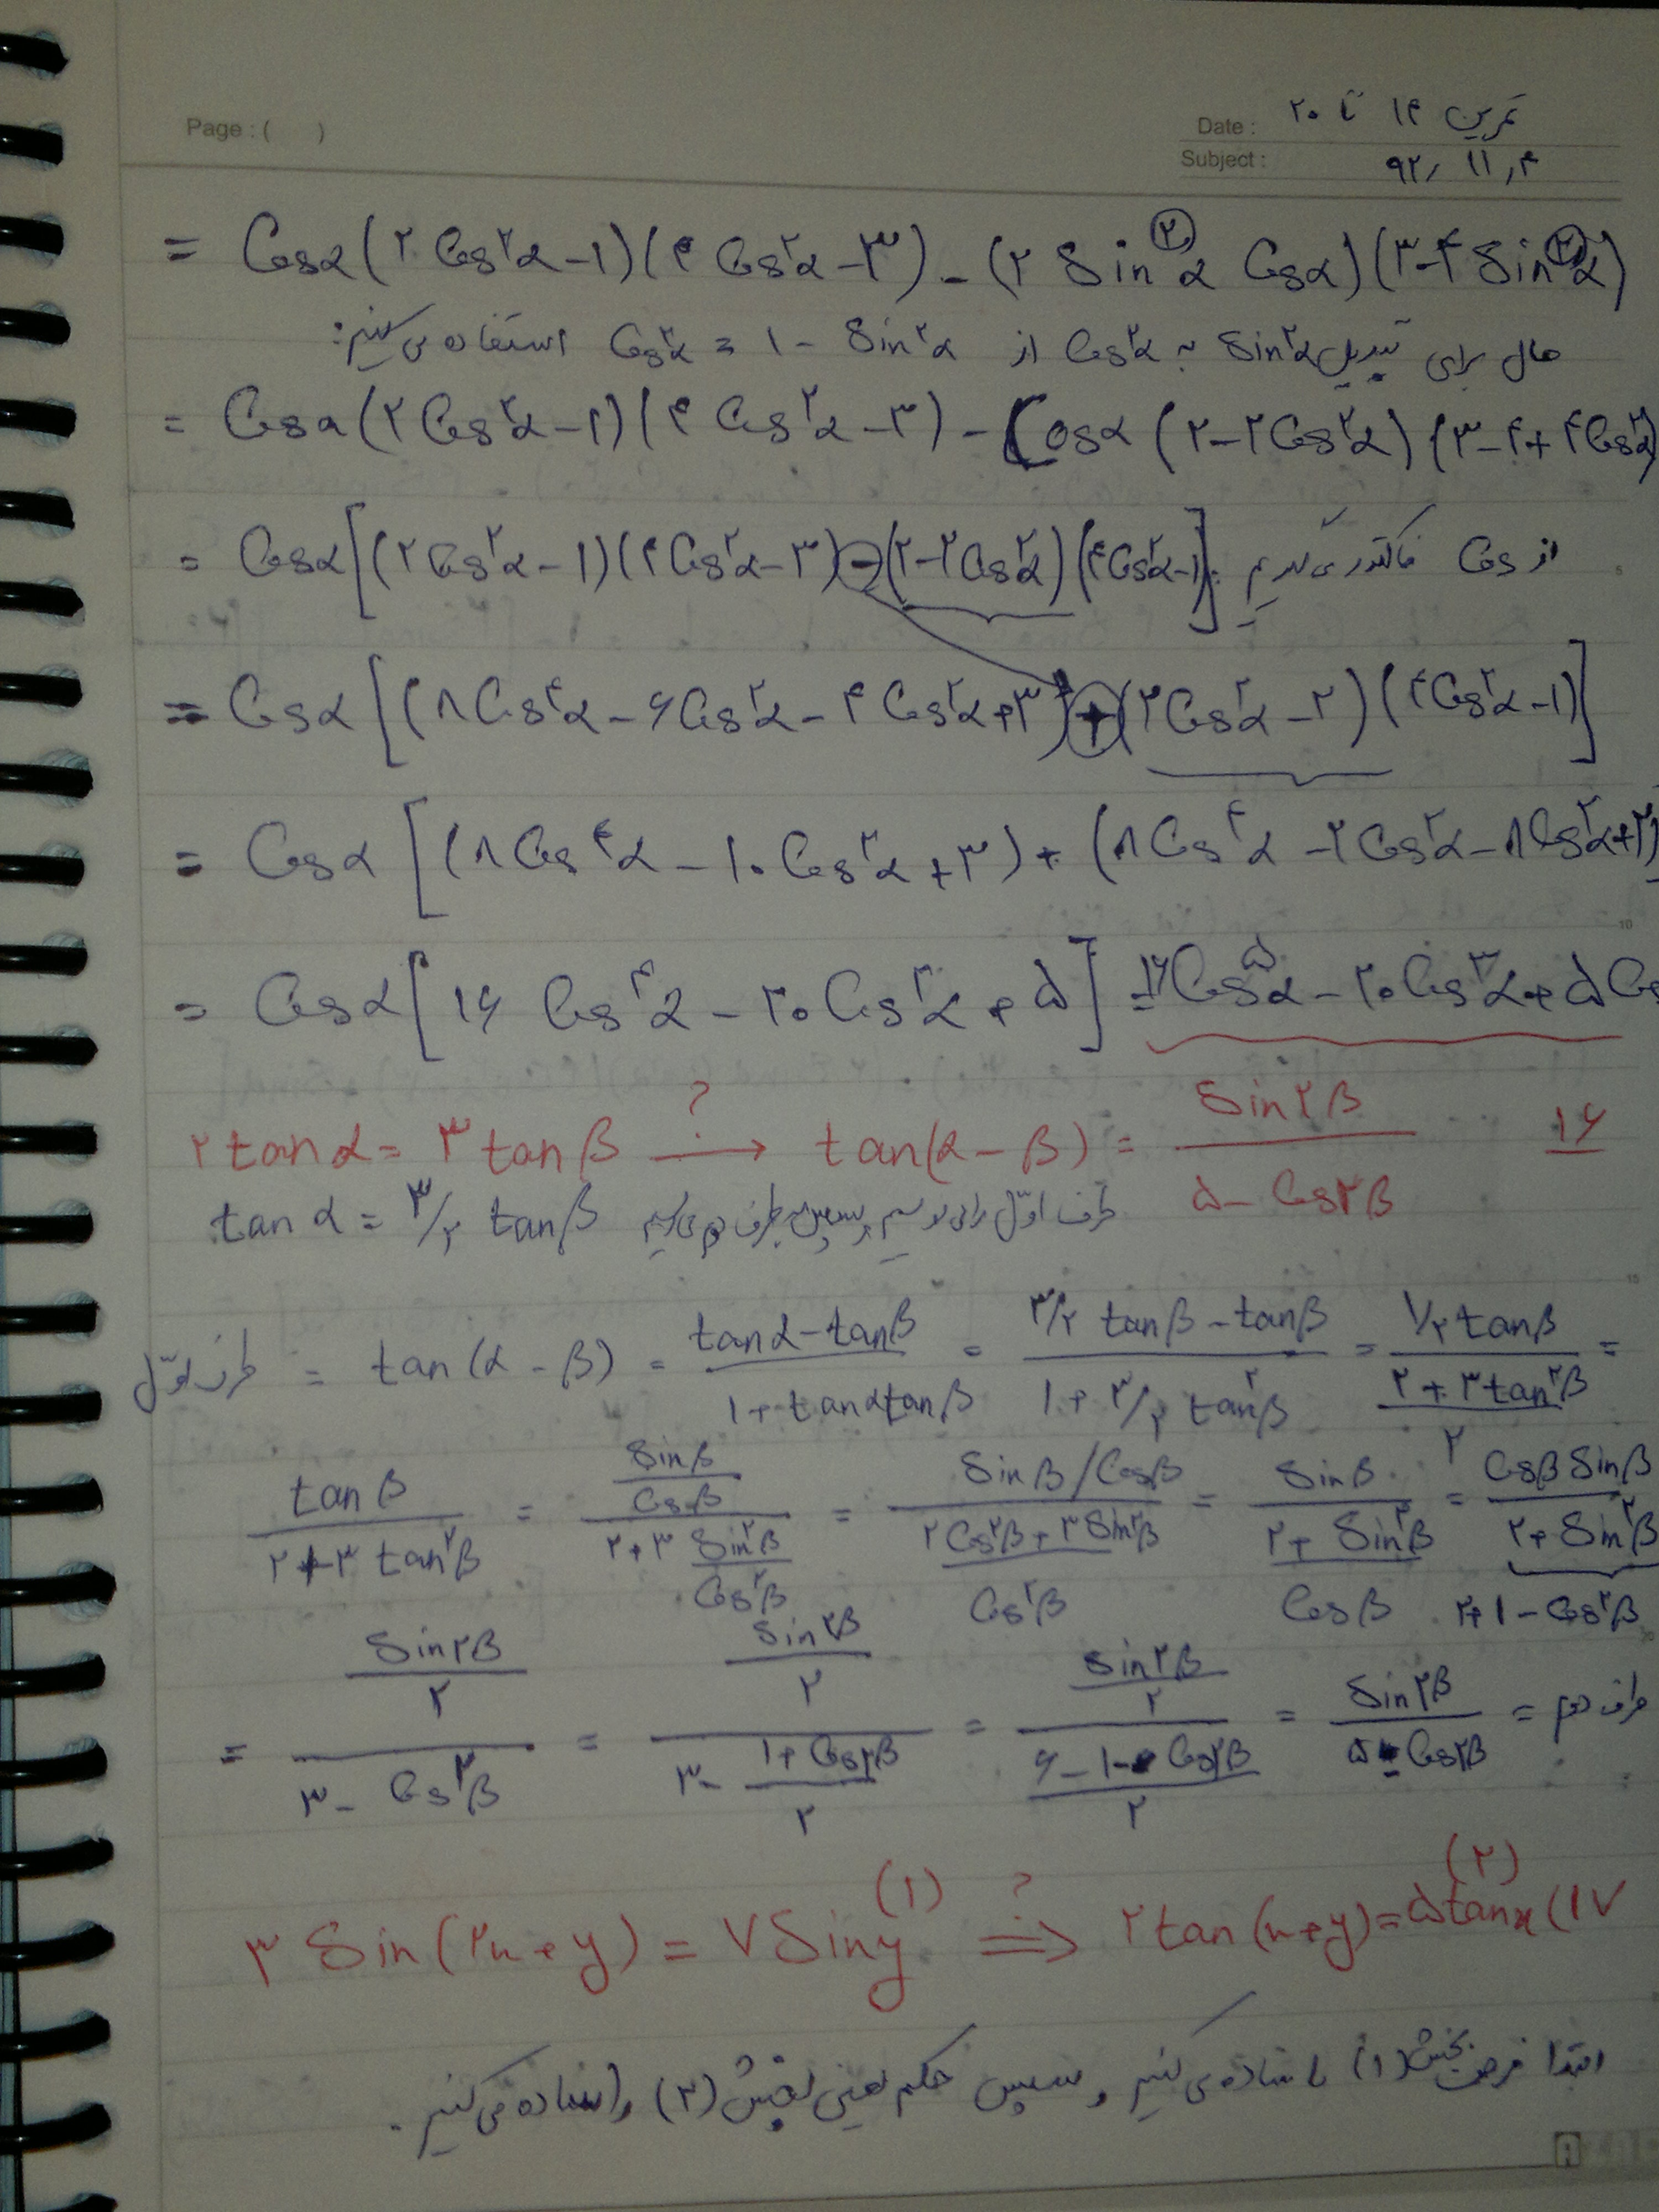 Page : ( )
Date : تمرین ۱۴ تا ۲۰
Subject : ۹۲/ ۱۱/ ۴
= Cosα(۲Cos²α-۱)(۴Cos²α-۳) - (۲ Sin²α Cosα)(۳-۴Sin²α)
حال برای تبدیل Sin²α به Cos²α از Cos²α = ۱ - Sin²α استفاده می‌کنیم:
= Cosα(۲Cos²α-۱)(۴Cos²α-۳) - Cosα(۲-۲Cos²α)(۳-۴+۴Cos²α)
= Cosα[(۲Cos²α-۱)(۴Cos²α-۳)-(۲-۲Cos²α)(۴Cos²α-۱)] از Cos فاکتور می‌گیریم
= Cosα[(۸Cos⁴α-۶Cos²α-۴Cos²α+۳)+(۲Cos²α-۲)(۴Cos²α-۱)]
= Cosα[(۸Cos⁴α-۱۰Cos²α+۳)+(۸Cos⁴α-۲Cos²α-۸Cos²α+۲)
= Cosα[۱۶Cos⁴α-۲۰Cos²α+۵] = ۱۶Cos⁵α-۲۰Cos³α+۵Cos
۲tanα = ۳tanβ ?→ tan(α-β) = Sin۲β / ۵-Cos۲β ۱۶
tanα = ۳/۲ tanβ طرف اول را می‌نویسیم سپس به طرف دوم می‌رسیم
طرف اول = tan(α-β) = tanα-tanβ / ۱+tanαtanβ = ۳/۲ tanβ-tanβ / ۱+۳/۲ tan²β = ۱/۲ tanβ / ۲+۳tan²β / ۲ =
tanβ / ۲+۳tan²β = Sinβ/Cosβ / ۲+۳ Sin²β/Cos²β = Sinβ/Cosβ / ۲Cos²β+۳Sin²β / Cos²β = Sinβ / ۲+Sin²β / Cosβ = CosβSinβ / ۲+Sin²β
۲+۱-Cos²β
= Sin۲β/۲ / ۳-Cos²β = Sin۲β/۲ / ۳-۱+Cos۲β/۲ = Sin۲β/۲ / ۶-۱-Cos۲β/۲ = Sin۲β / ۵-Cos۲β = طرف دوم
۳Sin(۲x+y) = ۷Siny (۱) ?⇒ ۲tan(x+y) = ۵tanx (۲) (۱۷
ابتدا فرض بخش (۱) را ساده می‌کنیم و سپس حکم یعنی بخش (۲) را ساده می‌کنیم.